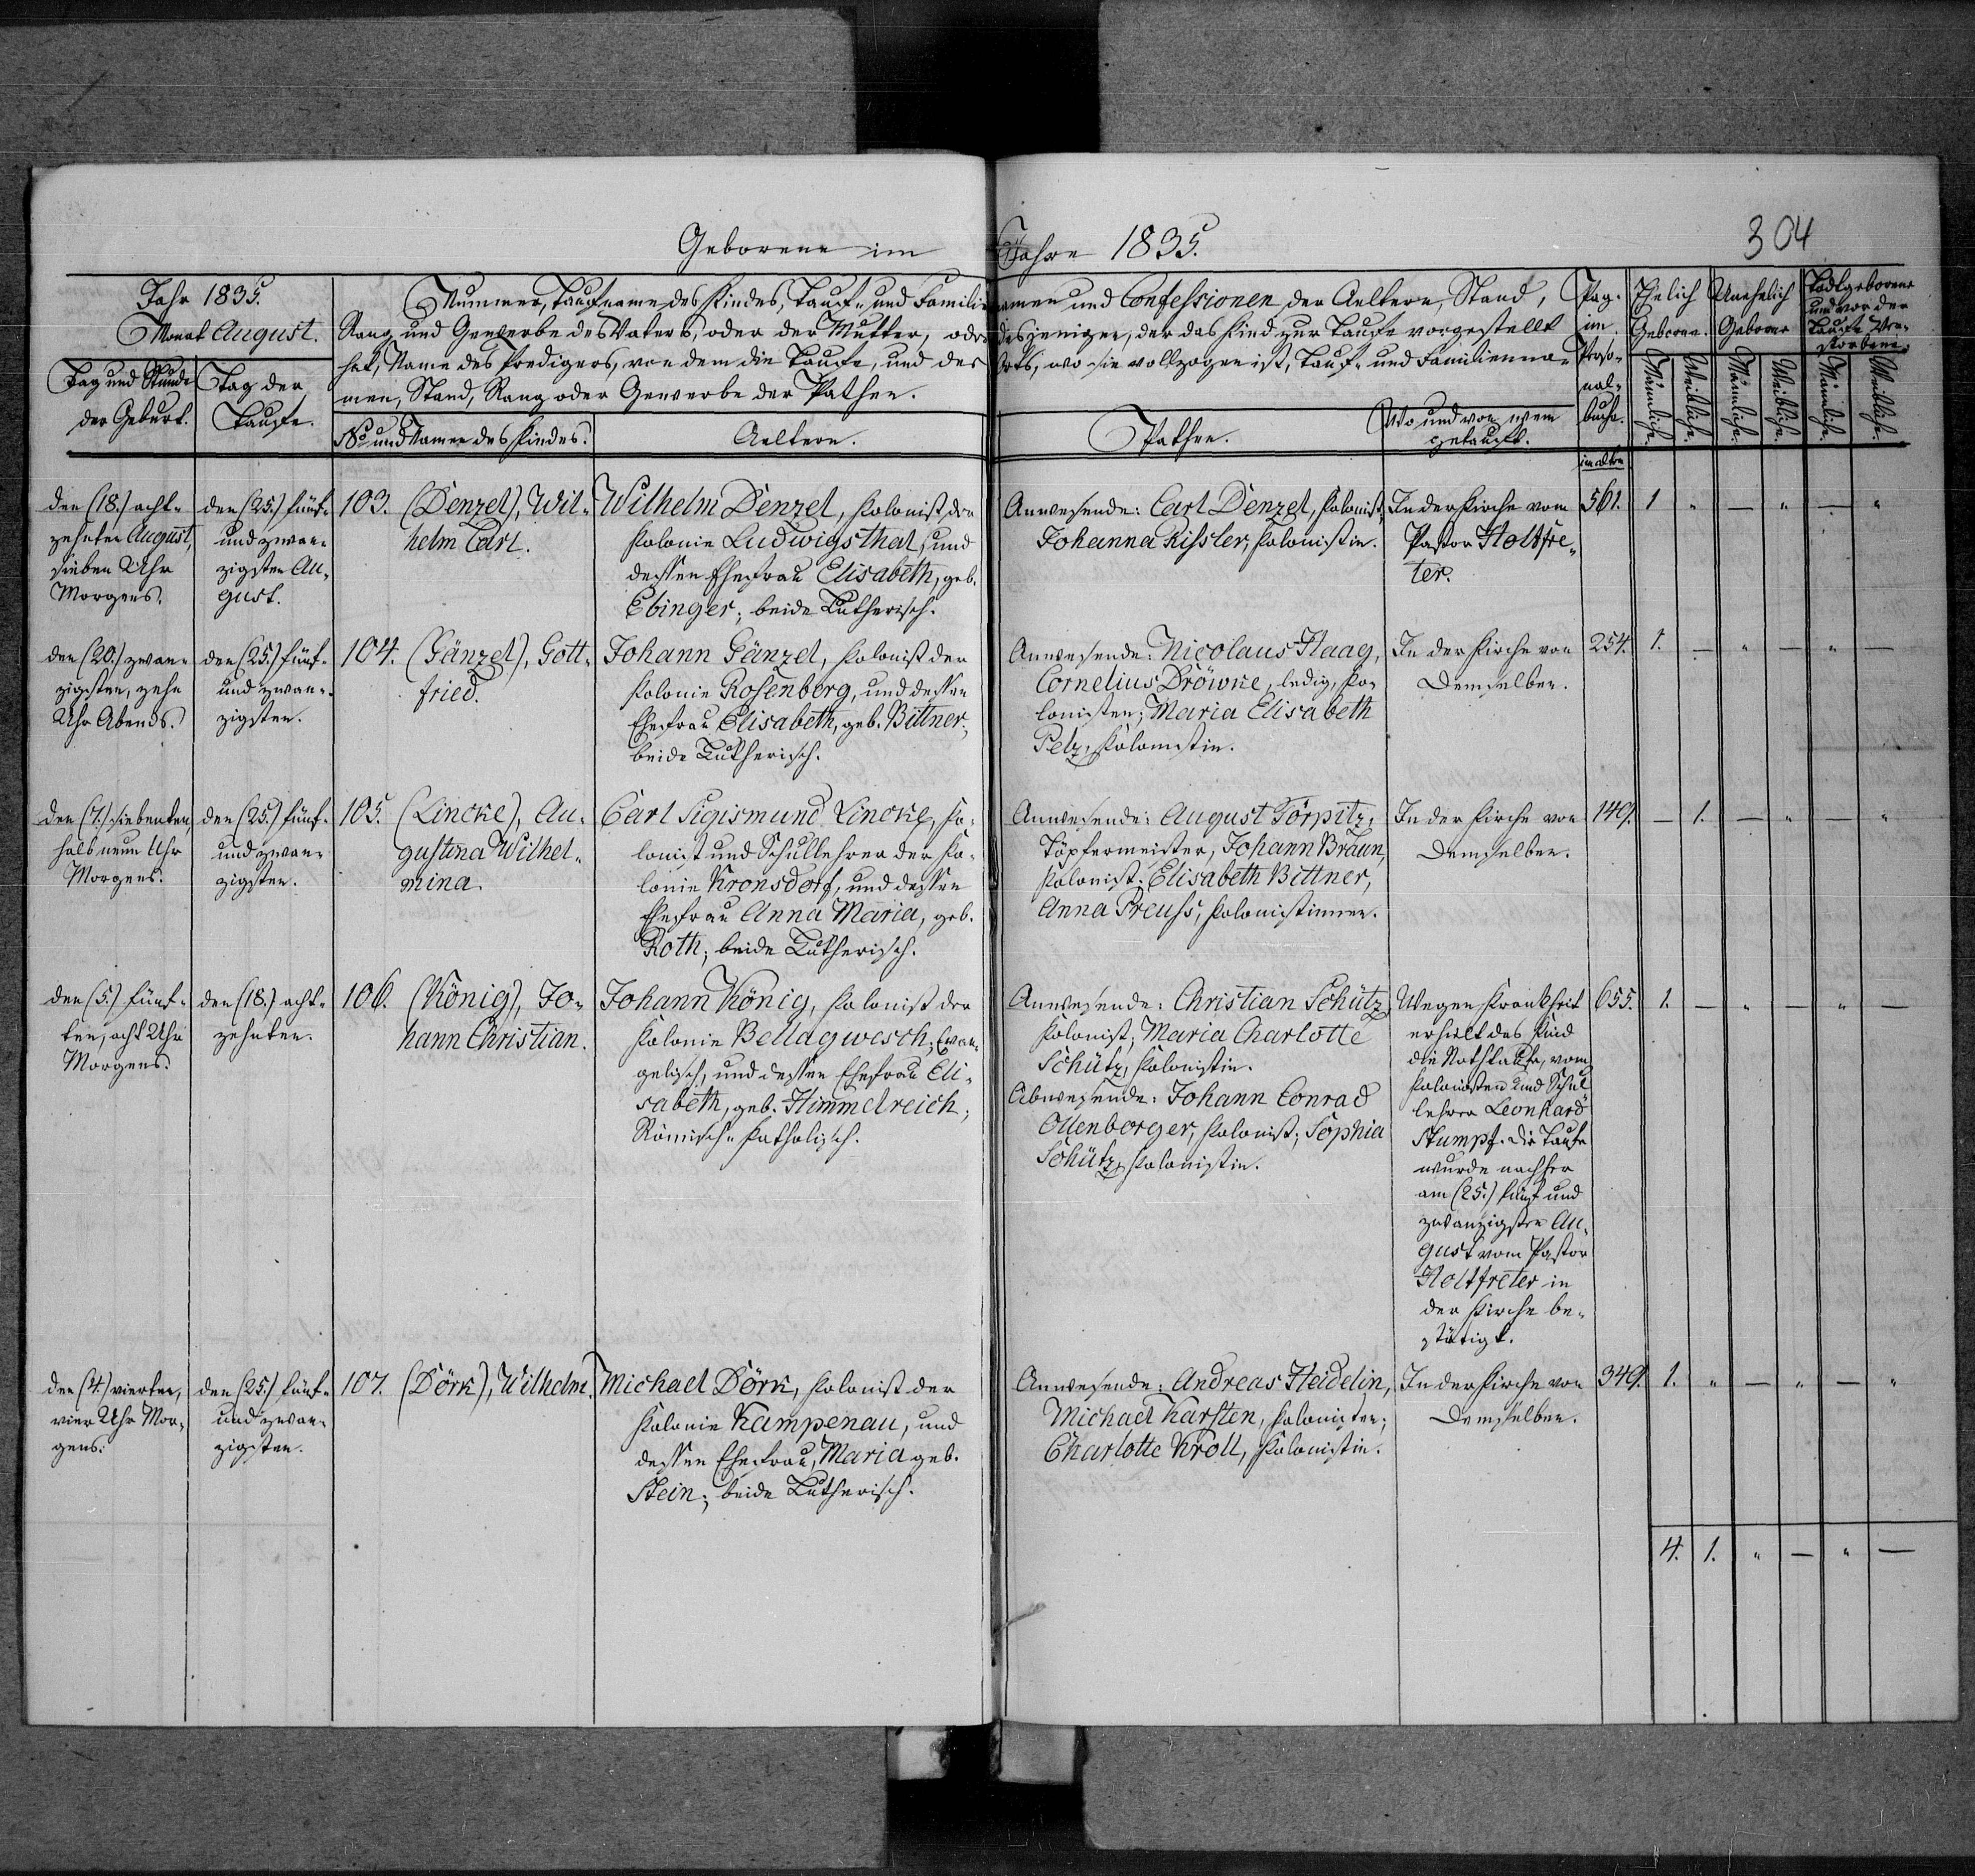 Geborene im Jahre 1835.
304
Jahr 1835.
Monat August.
Tag und Stunde
der Geburt.
Tag der
Taufe.
Nummer, Taufname des Kindes, Tauf- und Familiennamen und Confessionen der Aeltern, Stand,
Rang und Gewerbe des Vaters, oder der Mutter, oder desjenigen, der das Kind zur Taufe vorgestellt
hat, Name des Predigers, von dem die Taufe, und des Orts, wo sie vollzogen ist, Tauf- und Familienna-
men, Stand, Rang oder Gewerbe der Pathen.
No und Namen des Kindes.
Aeltern.
Pathen.
Wo und von wem
getauft.
Pag.
im
Perso-
nal-
buche.
Ehelich
Geborene.
Unehelich
Geborene
Todtgeborene
und vor der
Taufe Ver-
storbene.
Männliche.
Weibliche.
Männliche.
Weibliche.
Männliche.
Weibliche.
im alten
den (18.) acht-
zehnten August,
sieben Uhr
Morgens.
den (25.) fünf-
und zwan-
zigsten Au-
gust.
103. (Denzel), Wil-
helm Carl.
Wilhelm Denzel, Kolonist der
Kolonie Ludwigsthal, und
dessen Ehefrau Elisabeth, geb.
Ebinger; beide Lutherisch.
Anwesende: Carl Denzel, Kolonist,
Johanna Kissler, Kolonistin.
In der Kirche vom
Pastor Holtfre-
ter.
561. 1 „ — „ — „
den (20.) zwan-
zigsten, zehn
Uhr Abends.
den (25.) fünf-
und zwan-
zigsten.
104. (Gänzel), Gott-
fried.
Johann Gänzel, Kolonist der
Kolonie Rosenberg, und dessen
Ehefrau Elisabeth, geb. Bittner;
beide Lutherisch.
Anwesende: Nicolaus Haag,
Cornelius Dröwke, ledig, Ko-
lonisten; Maria Elisabeth
Pelz, Kolonistin.
In der Kirche von
Demselben.
254. 1. — „ — „ —
den (7.) siebenten,
halb neun Uhr
Morgens.
den (25.) fünf-
und zwan-
zigsten.
105. (Lincke), Au-
gustina Wilhel-
mina.
Carl Sigismund Lincke, Ko-
lonist und Schullehrer der Ko-
lonie Kronsdorf, und dessen
Ehefrau Anna Maria, geb.
Roth; beide Lutherisch.
Anwesende: August Törpitz,
Töpfermeister, Johann Braun,
Kolonist; Elisabeth Bittner,
Anna Preuss, Kolonistinnen.
In der Kirche von
Demselben.
149. — 1. — „ — „
den (5.) fünf-
ten, acht Uhr
Morgens.
den (18.) acht-
zehnten.
106. (König), Jo-
hann Christian.
Johann König, Kolonist der
Kolonie Bellagwesch; Evan-
gelisch, und dessen Ehefrau Eli-
sabeth, geb. Himmelreich;
Römisch-Katholisch.
Anwesende: Christian Schütz,
Kolonist; Maria Charlotte
Schütz, Kolonistin.
Abwesende: Johann Conrad
Ollenborger, Kolonist; Sophia
Schütz, Kolonistin.
Wegen Krankheit
erhielt das Kind
die Nothtaufe, vom
Kolonisten und Schul
lehrer Leonhard
Stumpf. Die Taufe
wurde nachher
am (25.) fünf und
zwanzigsten Au-
gust vom Pastor
Holtfreter in
der Kirche be-
stätigt.
655. 1. — „ — „ —
den (4.) vierten,
vier Uhr Mor-
gens.
den (25.) fünf-
und zwan-
zigsten.
107. (Dörk), Wilhelm.
Michael Dörk, Kolonist der
Kolonie Kampenau, und
dessen Ehefrau, Maria geb.
Stein; beide Lutherisch.
Anwesende: Andreas Heidelin,
Michael Karsten, Kolonisten;
Charlotte Kroll, Kolonistin.
In der Kirche von
Demselben.
349. 1. „ — „ — „
4. 1. „ — „ —